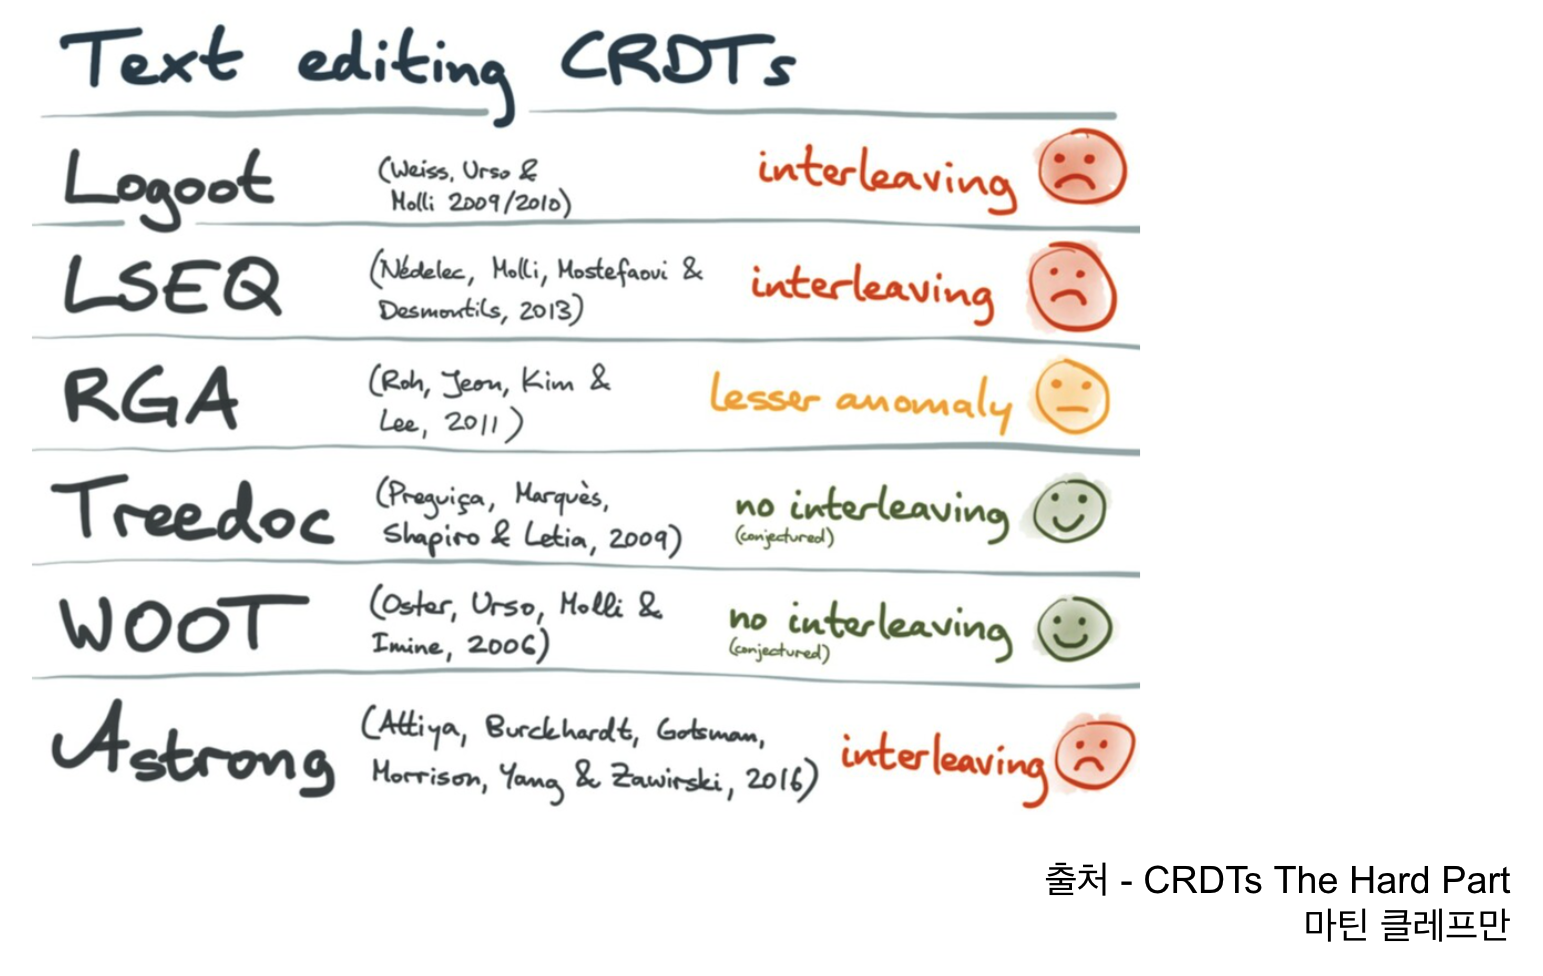 Text editing CRDTs
Logoot (Weiss, Urso & Molli 2009/2010) interleaving
LSEQ (Nédelec, Molli, Mostefaoui & Desmontils, 2013) interleaving
RGA (Roh, Jeon, Kim & Lee, 2011) lesser anomaly
Treedoc (Preguiça, Marquès, Shapiro & Letia, 2009) no interleaving (conjectured)
WOOT (Oster, Urso, Molli & Imine, 2006) no interleaving (conjectured)
Astrong (Attiya, Burckhardt, Gotsman, Morrison, Yang & Zawirski, 2016) interleaving
출처 - CRDTs The Hard Part
마틴 클레프만